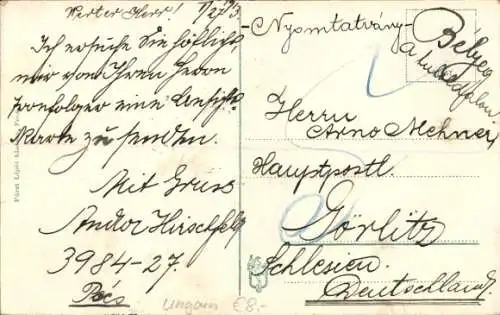 Werter Herr!
Ich ersuche Sie höflichst
mir von Ihren Herrn
eine Ansichts-
Karte zu senden.
Mit Gruss
Andor Hirschfeld
3984-27.
Pécs
-Nyomtatvány-
Bélyeg
a tuloldalon.
Herrn
Arno Mehner
Hauptpostl.
Görlitz
Schlesien.
Deutschland.
Ungarn €8,-